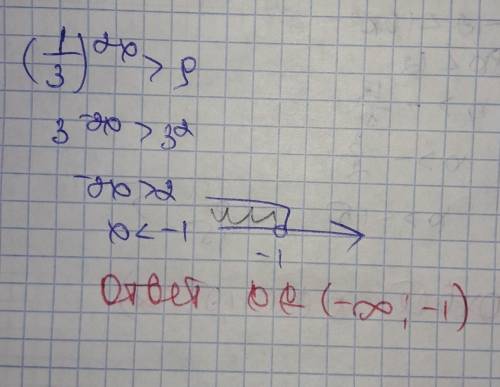 (1/3)^2x > 9
3^-2x > 3^2
-2x > 2
x < -1
-1
Ответ x ∈ (-∞; -1)